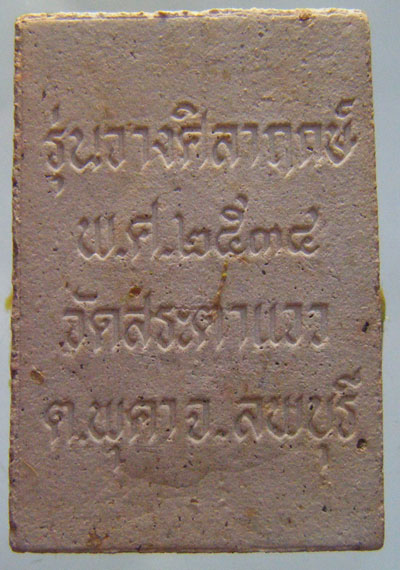 รุ่นวางศิลาฤกษ์
พ.ศ.๒๕๓๔
วัดสระตาแวว
ต.พุคา จ.ลพบุรี